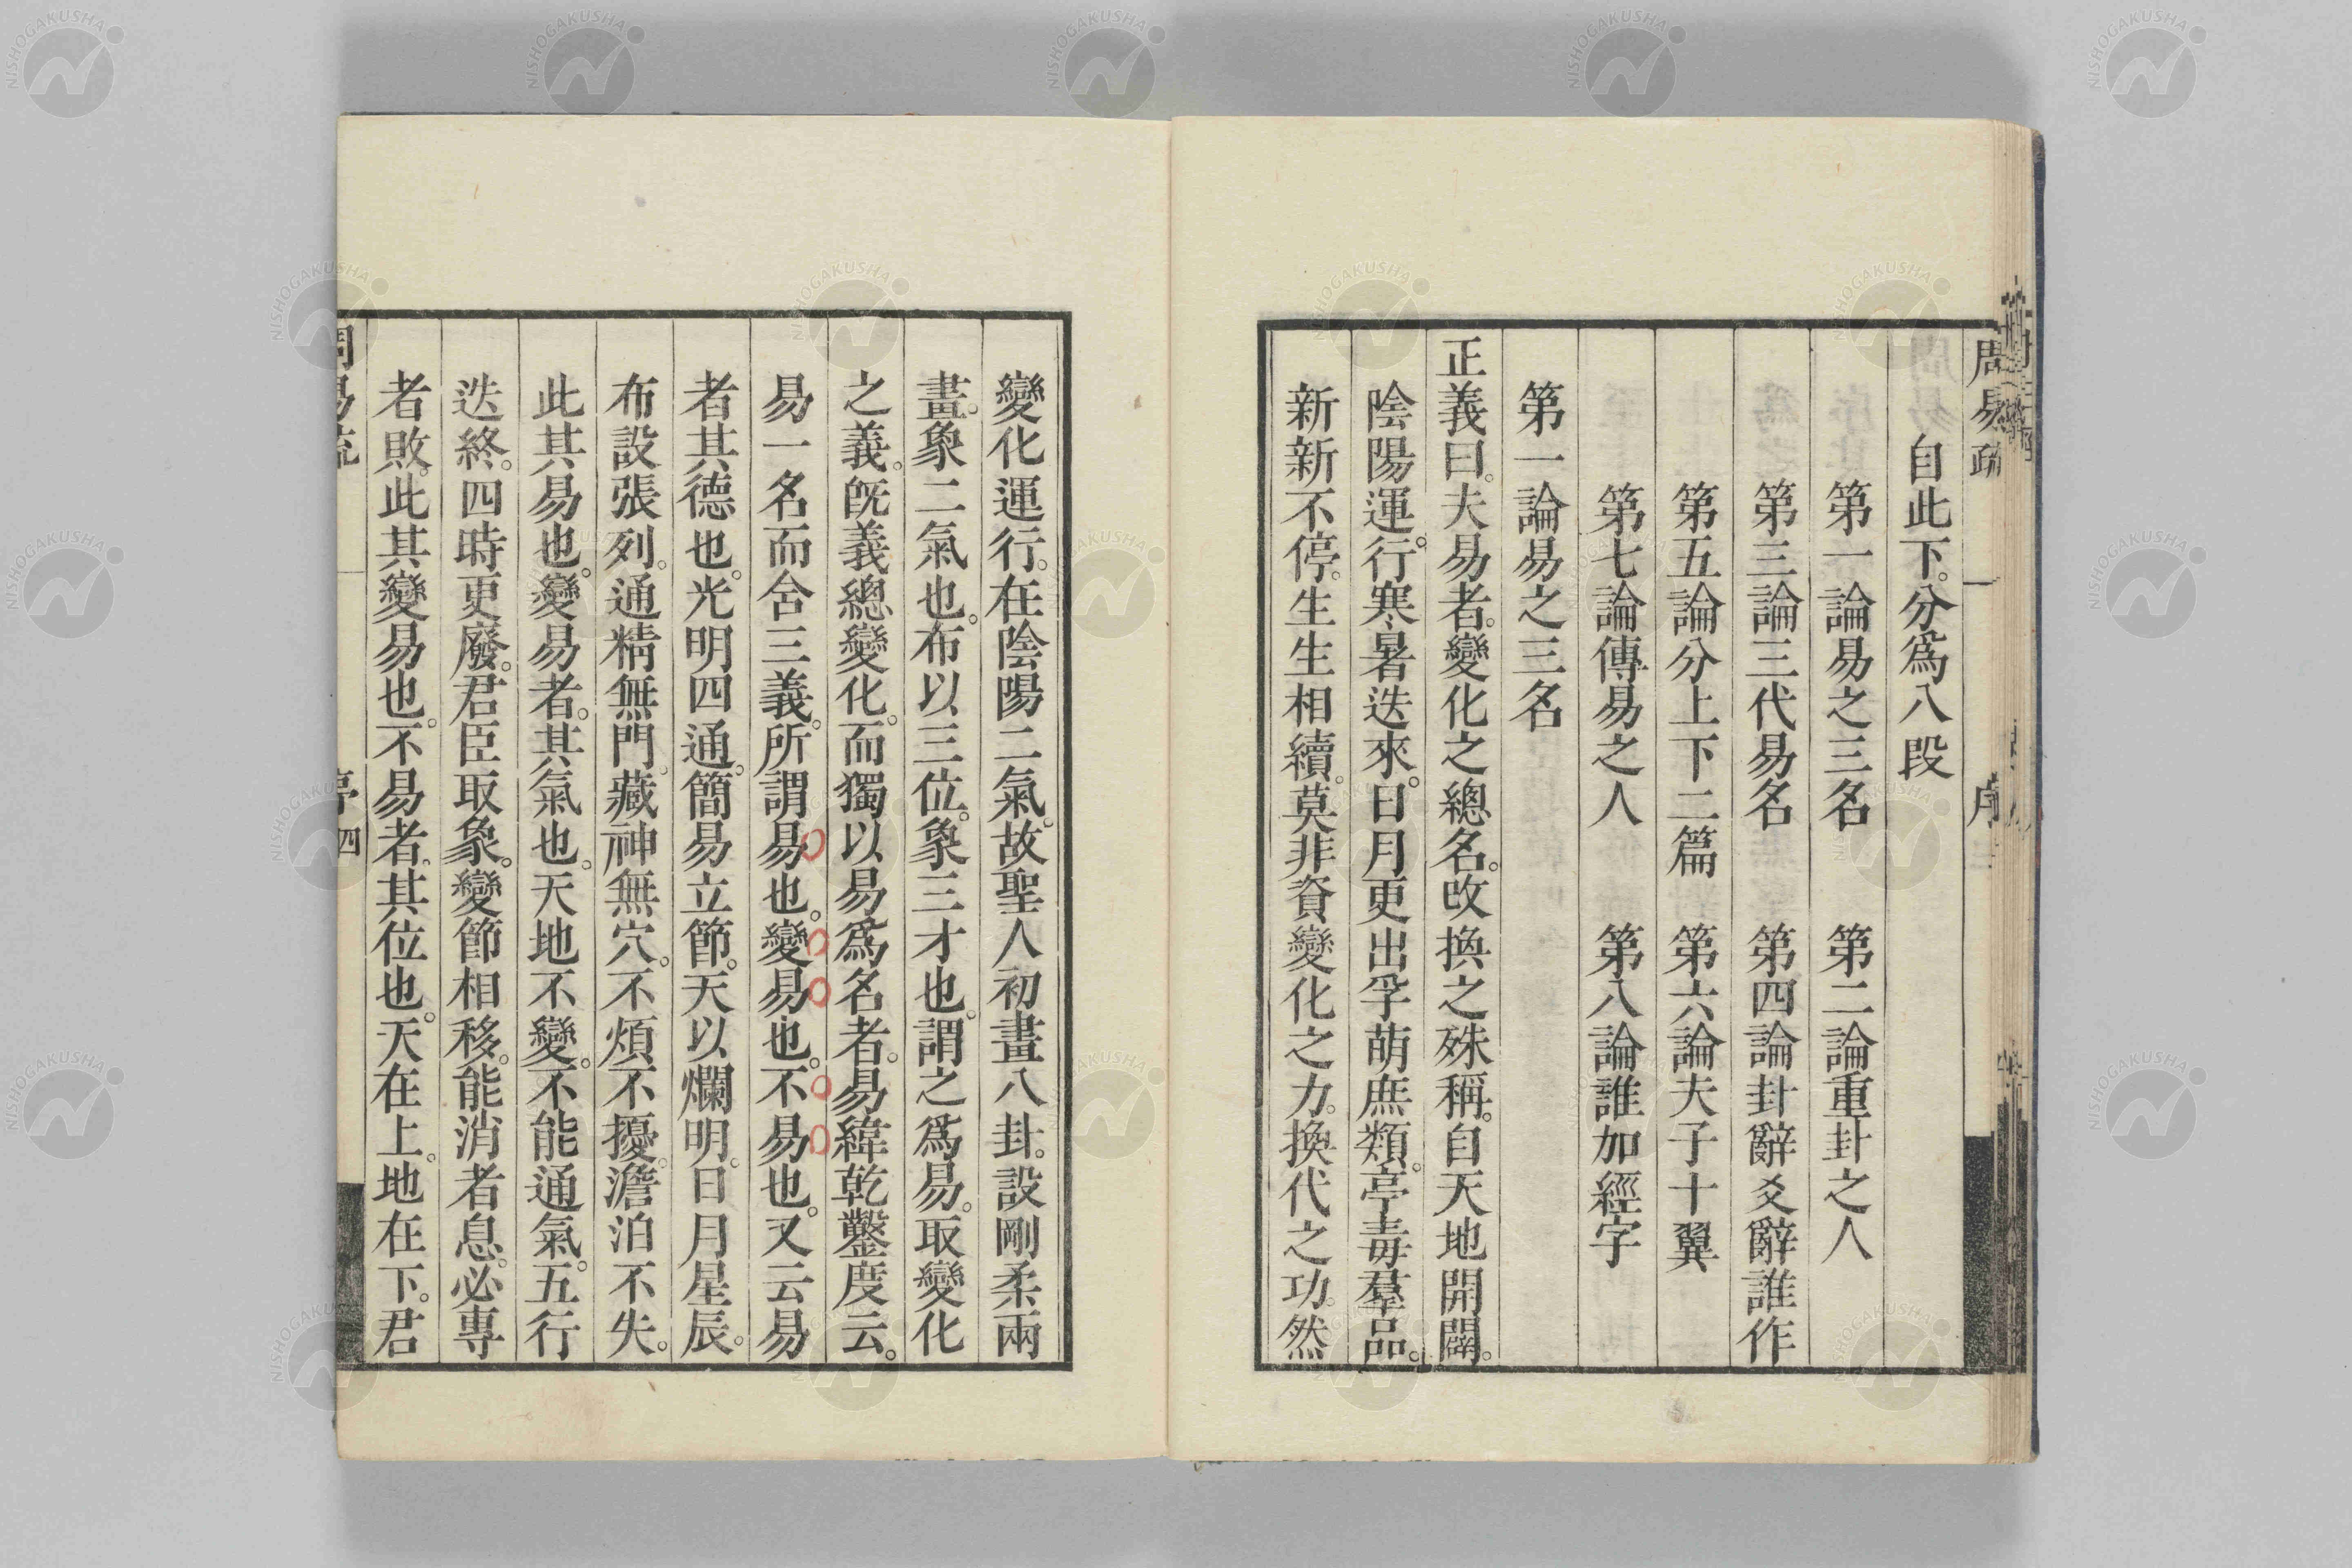 周易疏 序
自此下。分爲八段
第一論易之三名 第二論重卦之人
第三論三代易名 第四論卦辭爻辭誰作
第五論分上下二篇 第六論夫子十翼
第七論傳易之人 第八論誰加經字
第一論易之三名
正義曰。夫易者。變化之總名。改換之殊稱。自天地開闢。
陰陽運。行寒暑迭來。日月更出。孚萌庶類。亭毒羣品。
新新不停。生生相續。莫非資變化之力。換代之功。然
變化運行。在陰陽二氣。故聖人初畫八卦。設剛柔兩
畫。象二氣也。布以三位。象三才也。謂之爲易。取變化
之義。旣義總變化。而獨以易爲名者。易緯乾鑿度云。
易一名而含三義。所謂易也。變易也。不易也。又云易
者其德也。光明四通。簡易立節。天以爛明。日月星辰。
布設張列。通精無門。藏神無穴。不煩不擾。澹泊不失。
此其易也。變易者。其氣也。天地不變。不能通氣。五行
迭終。四時更廢。君臣取象。變節相移。能消者息。必專
者敗。此其變易也。不易者。其位也。天在上。地在下。君
周易疏 序 四
NISHOGAKUSHA